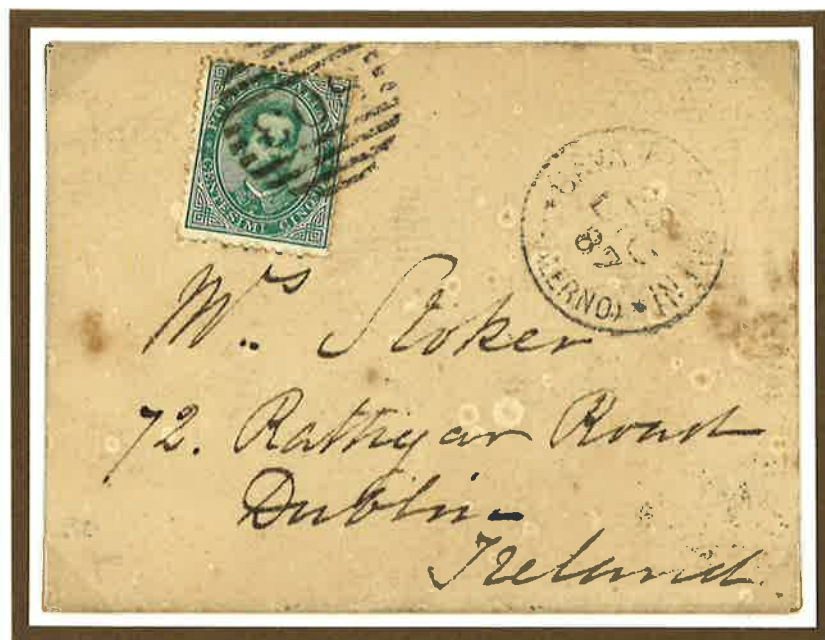 CENTESIMI CINQUE
87
Mrs Stoker
72. Rathgar Road
Dublin
Ireland